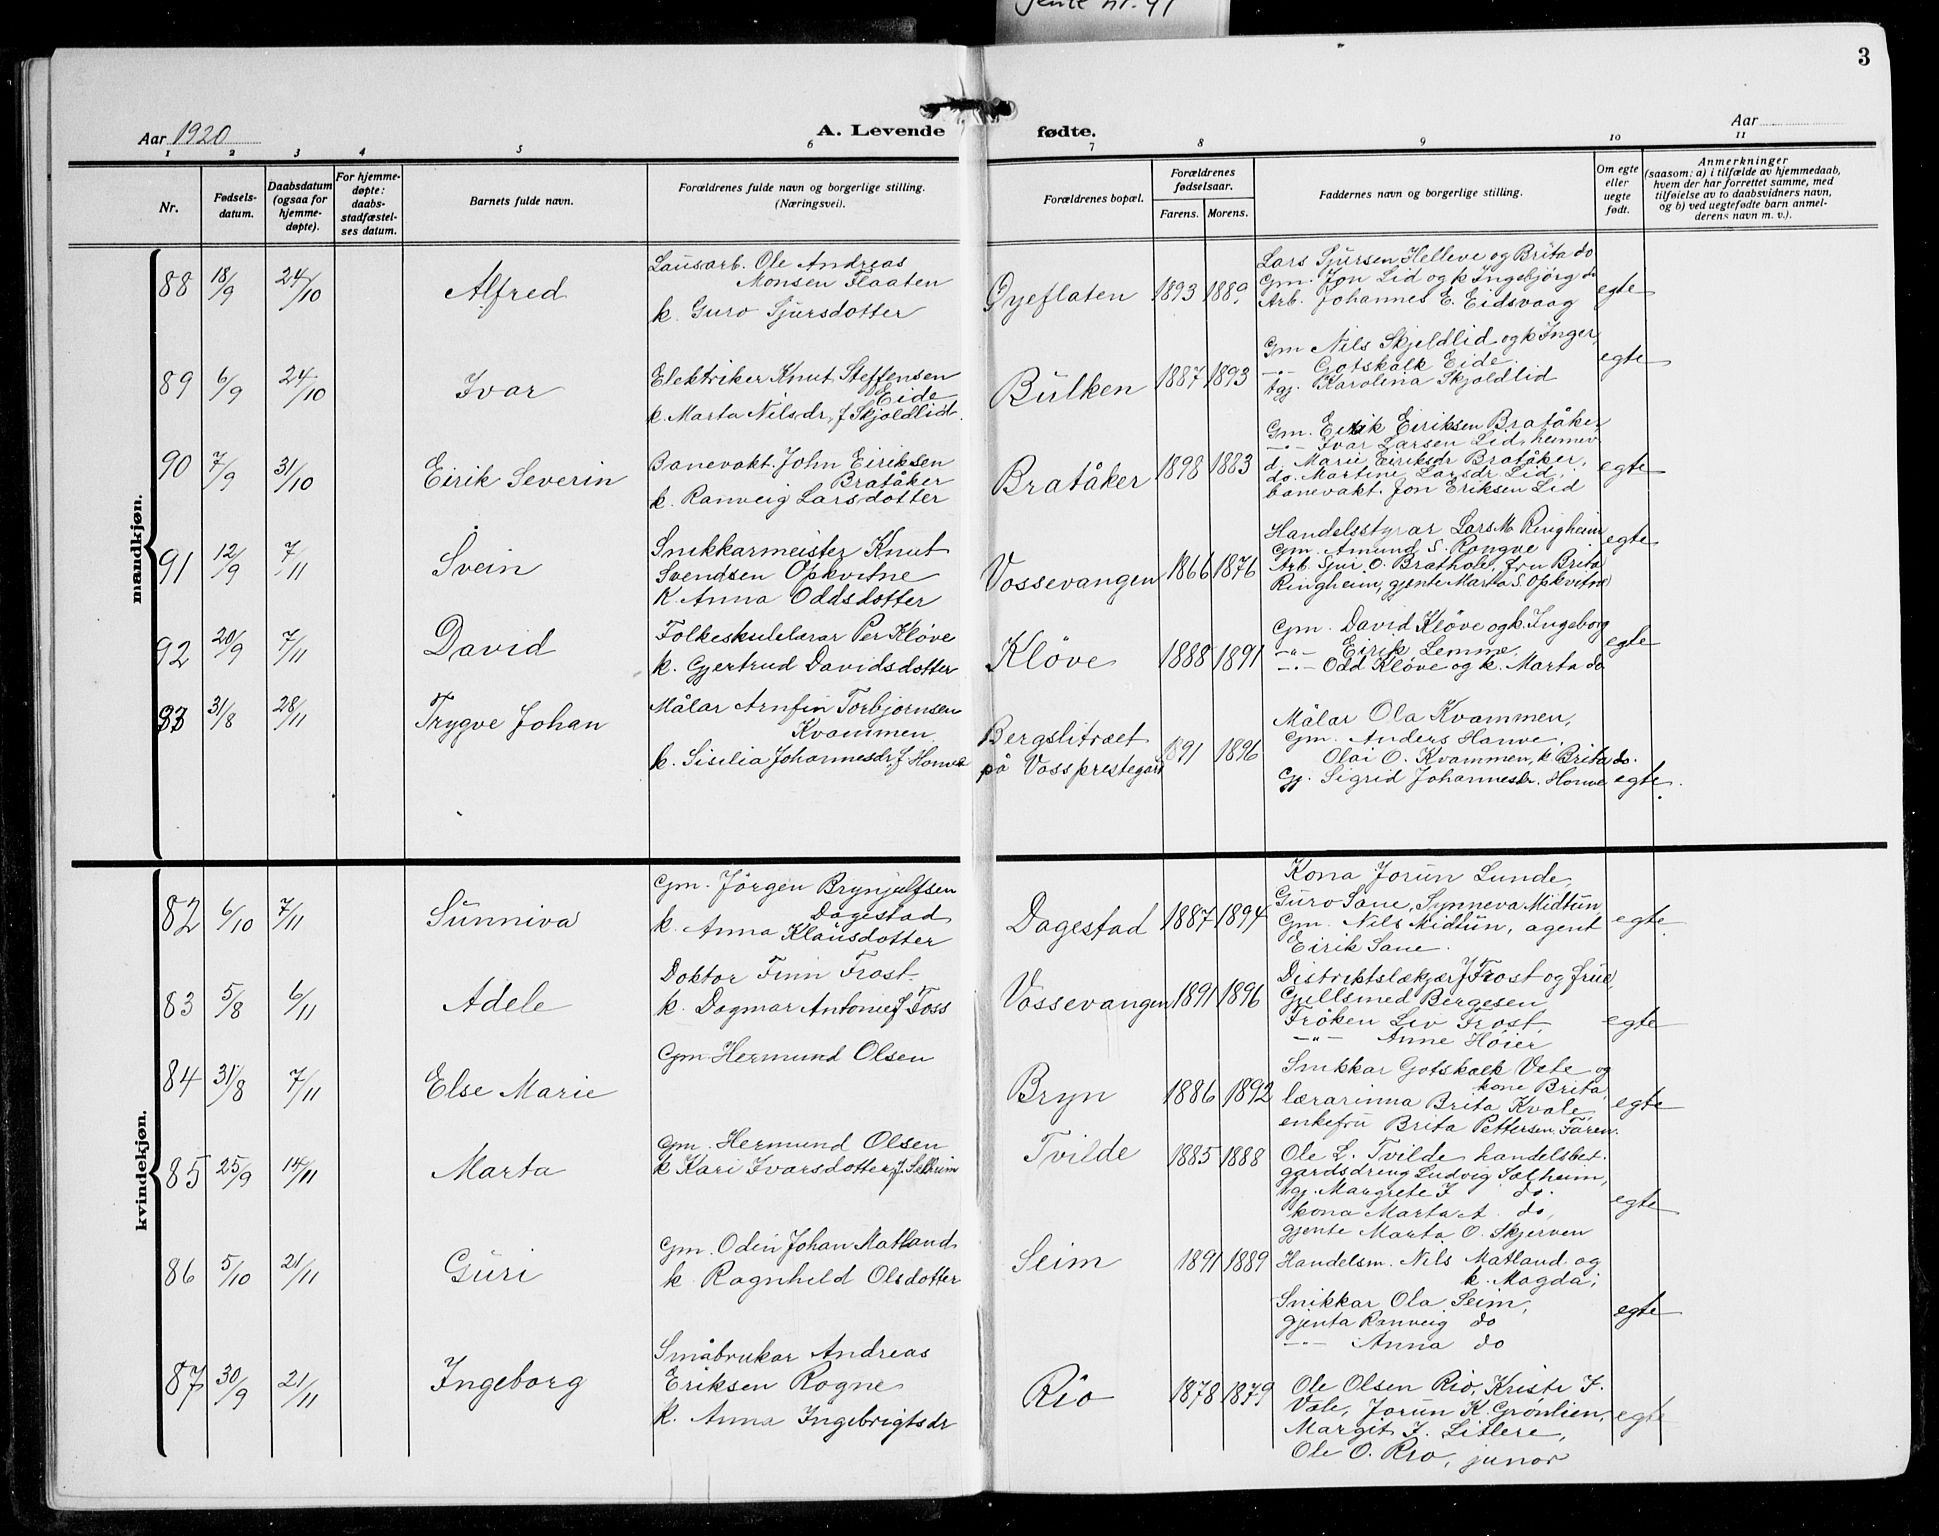 Jente nr. 41
3
Aar 1920
A. Levende
fødte.
Aar
1 2 3 4 5 6 7 8 9 10 11
Nr.
Fødsels-
datum.
Daabsdatum
(ogsaa for
hjemme-
døpte).
For hjemme-
døpte:
daabs-
stadfæstel-
ses datum.
Barnets fulde navn.
Forældrenes fulde navn og borgerlige stilling.
(Næringsvei).
Forældrenes bopæl.
Forældrenes
fødselsaar.
Farens. Morens.
Faddernes navn og borgerlige stilling.
Om egte
eller
uegte
født.
Anmerkninger
(saasom: a) i tilfælde av hjemmedaab,
hvem der har forrettet samme, med
tilføielse av to daabsvidners navn,
og b) ved uegtefødte barn anmel-
derens navn m. v.).
mandkjøn.
88 18/9 24/10 Alfred
Lausarb. Ole Andreas
Monsen Flaaten
k. Guro Sjursdotter
Øyeflaten 1893 1889
Lars Sjursen Helleve og Brita do
Gm. Jon Lid og k Ingebjørg do
Arb. Johannes E. Eidsvaag
egte
89 6/9 24/10 Ivar
Elektriker Knut Steffensen
Eide
k. Marta Nilsdr, f Skjoldlid.
Bulken 1887 1893
Gm Nils Skjeldlid og k Inger,
-"- Gotskalk Eide.
tgj. Karolina Skjoldlid
egte
90 7/9 31/10 Eirik Severin
Banevakt. John Eiriksen
Bratåker
k. Ranveig Larsdotter
Bratåker 1898 1883
Gm. Eirik Eiriksen Bratåker
-"- Ivar Larsen Lid, heimev
d. Marie Eiriksdr Bratåker,
do. Martine Larsdr Lid,
banevakt. Jon Eriksen Lid
egte
91 12/9 7/11 Svein
Snikkarmeister Knut
Svendsen Opkvitne
K. Anna Oddsdotter
Vossevangen 1866 1876
Handelsstyrar Lars M Ringheim
Gm. Amund S. Rongve
Arb. Sjur O. Brathole, fru Brita
Ringheim, gjente Marta S. Opkvitne
egte
92 20/9 7/11 David
Folkeskulelærar Per Kløve
k. Gjertrud Davidsdotter
Kløve 1888 1891
Gm. David Kløve og k. Ingeborg
-"- Eirik Lemme,
-"- Odd Kløve og k. Marta do
egte
93 31/8 28/11 Trygve Johan
Målar Arnfin Torbjornsen
Kvammen
k. Sisilia Johannesdr, f Honve
Bergslitræet
på Vossprestegård
1891 1896
Målar Ola Kvammen,
Gm. Anders Honve,
Olai O. Kvammen, k. Brita do.
Gj. Sigrid Johannesdr. Honve
egte.
kvindekjøn.
82 6/10 7/11 Sunniva
Gm. Jørgen Brynjulfsen
Dagestad
k. Anna Klausdotter
Dagestad 1887 1894
Kona Jorun Lunde,
Guro Sane, Synneva Midtun,
Gm. Nils Midtun, agent
Eirik Sane.
egte
83 5/8 6/11 Adele
Doktor Finn Frost
k. Dagmar Antonie f Foss
Vossevangen 1891 1896
Distriktslækjar J Frost og frue,
Gullsmed Bergesen
Frøken Liv Frost
-"- Anne Høier
egte
84 31/8 7/11 Else Marie
Gm Hermund Olsen
Bryn 1886 1892
Snikkar Gotskalk Vete og
kone Brita,
lærarinna Brita Kvale,
enkefru Brita Pettersen, Føren.
egte
85 25/9 14/11 Marta
Gm. Hermund Olsen
k Kari Ivarsdotter f. Selheim
Tvilde 1885 1888
Ole L. Tvilde handelsbet.
gardsdreng Ludvig Sælheim,
tgj. Margrete I do.
kona Marta A. do,
gjente Marta O. Skjerven
egte
86 5/10 21/11 Guri
Gm. Odin Johan Matland
k Ragnhild Olsdotter
Seim 1891 1889
Handelsm. Nils Matland og
k. Magda;
Snikkar Ola Seim,
gjenta Ranveig do
-"- Anna do
egte
87 30/9 21/11 Ingeborg
Småbrukar Andreas
Eriksen Rogne
k. Anna Ingebrigtsdr
Rio 1878 1879
Ole Olsen Rio, Kristi I.
Vale, Jorun K. Grønlien,
Margit I. Litlere,
Ole O. Rio, junor
egte